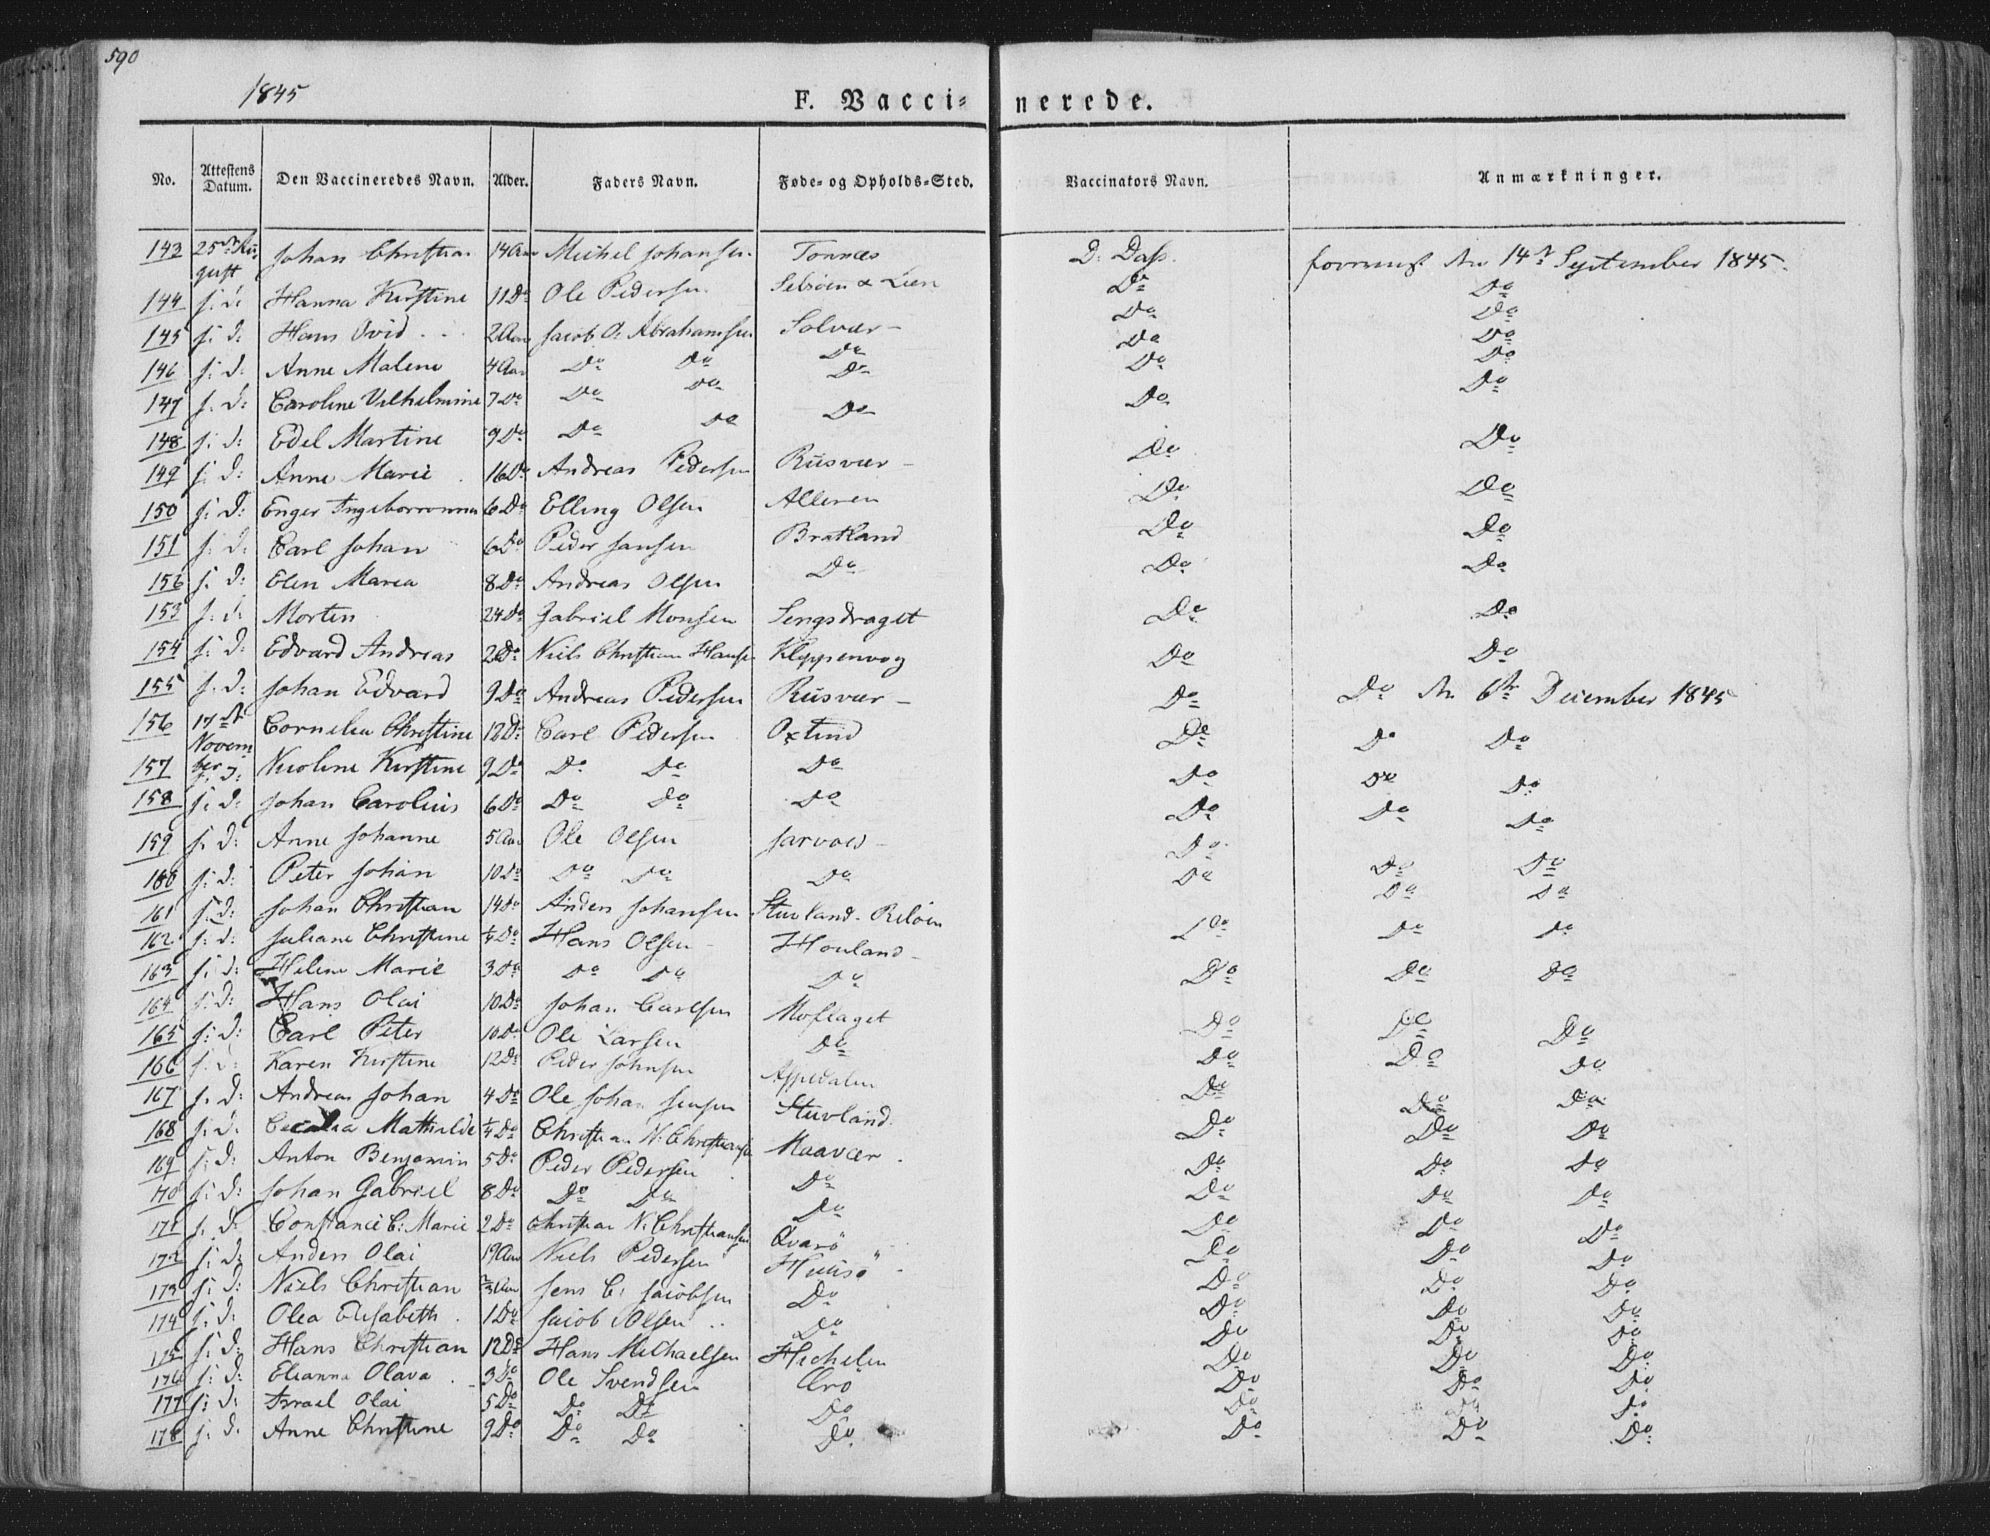 590
1845
F. Vaccinerede.
No. Attestens Datum. Den Vaccineredes Navn. Alder. Faders Navn. Føde- og Opholds-Sted. Vaccinators Navn. Anmærkninger.
143 25de August Johan Christian 14 Aar Michel Johansen Tonnes D. Dass. den 14de September 1845.
144 s: d: Hanna Kirstine 11 Do Ole Pedersen Do Do
145 s: d: Hans Ovid 2 Aar Jacob O. Abrahamsen Solvær Do Do
146 s: d: Anne Malene 4 Aar Do Do Do Do Do
147 s: d: Caroline Vilhelmine 7 Do Do Do Do Do Do
148 s: d: Edel Martine 9 Do Do Do Do Do Do
149 s: d: Anne Marie 16 Do Andreas Pedersen Rusvær Do Do
150 s: d: Enger 6 Do Elling Olsen Alleren Do Do
151 s: d: Carl Johan 6 Do Peder Jansen Bratland Do Do
156 s: d: Elen Maria 8 Do Andreas Olsen Do Do Do
153 s: d: Morten 24 Do Gabriel Monsen Sengsdraget Do Do
154 s: d: Edvard Andreas 2 Do Niels Christian Hansen Kleppenvog Do Do
155 s: d: Johan Edvard 9 Do Andreas Pedersen Rusvær Do Do den 6te December 1845
156 17de November Cornelia Christine 12 Do Carl Pedersen Oxtind Do Do Do
157 s: d: Nicoline Kirstine 9 Do Do Do Do Do Do Do
158 s: d: Johan Carolius 6 Do Do Do Do Do Do Do
159 s: d: Anne Johanne 5 Aar Ole Olsen Do Do Do
160 s: d: Peter Johan 10 Do Do Do Do Do Do Do
161 s: d: Johan Christian 14 Do Anders Johansen Stuvland Do Do
162 s: d: Juliane Christine 1/4 Do Hans Olsen Houland Do Do Do
163 s: d: Helene Marie 3 Do Do Do Do Do Do Do
164 s: d: Hans Olai 10 Do Johan Carlsen Moflaget Do Do Do
165 s: d: Carl Peter 10 Do Ole Larsen Do Do Do Do
166 s: d: Karen Kirstine 12 Do Peder Johnsen Aspedalen Do Do Do
167 s: d: Andreas Johan 4 Do Ole Johan Jensen Stuvland Do Do Do
168 s: d: Mathilde 1/4 Do Christian N. Christiansen Maavær Do Do Do
169 s: d: Anton Benjamin 5 Do Peder Pedersen Do Do Do Do
170 s: d: Johan Gabriel 8 Do Do Do Do Do Do Do
171 s: d: Constance C: Marie 2 Do Christian N. Christiansen Qvarø Do Do Do
172 s: d: Anders Olai 19 Aar Niels Pedersen Huusø Do Do Do
173 s: d: Niels Christian Aar Jens C: Jacobsen Do Do Do Do
174 s: d: Olea Elisabeth 1 Do Jacob Olsen Do Do Do Do
175 s: d: Hans Christian 12 Do Hans Michaelsen Do Do Do
176 s: d: Elianna Olava 3 Do Ole Svendsen Do Do Do
177 s: d: Israel Olai 5 Do Do Do Do Do Do Do
178 s: d: Anne Christine 9 Do Do Do Do Do Do Do